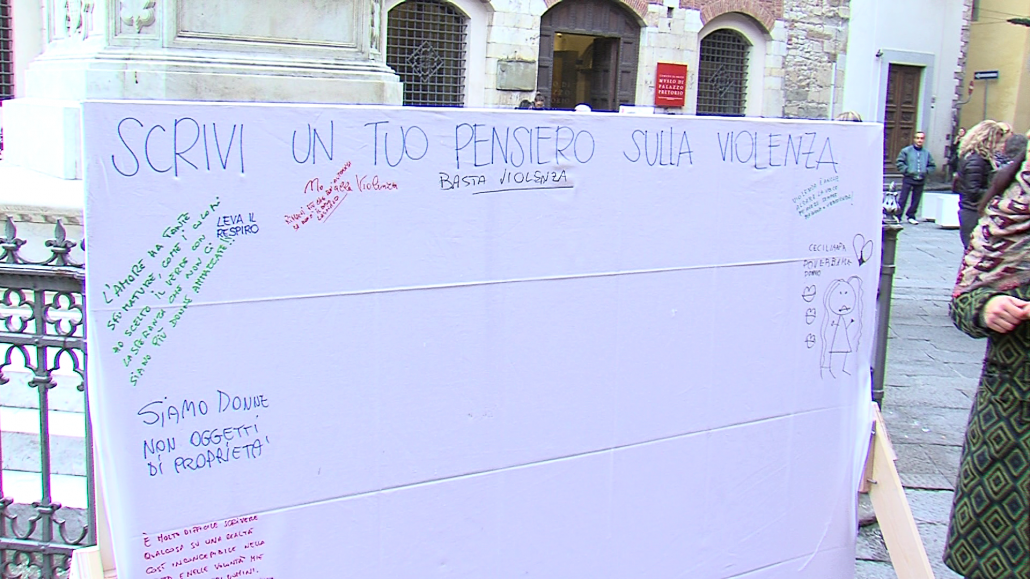 MUSEO DI
PALAZZO
PRETORIO
SCRIVI UN TUO PENSIERO SULLA VIOLENZA
BASTA VIOLENZA
Violenza
LEVA IL
RESPIRO
L'AMORE HA TANTE
SFUMATURE, COME I COLORI
HO SCELTO IL VERDE CON
LA SPERANZA CHE NON CI
SIANO PIÙ DONNE AMMAZZATE!!
DONNE
SIAMO DONNE
NON OGGETTI
DI PROPRIETA'
È MOLTO DIFFICILE SCRIVERE
QUALCOSA SU UNA REALTÀ
COSÌ INCONCEPIBILE NELLA
E NELLE VOLONTÀ